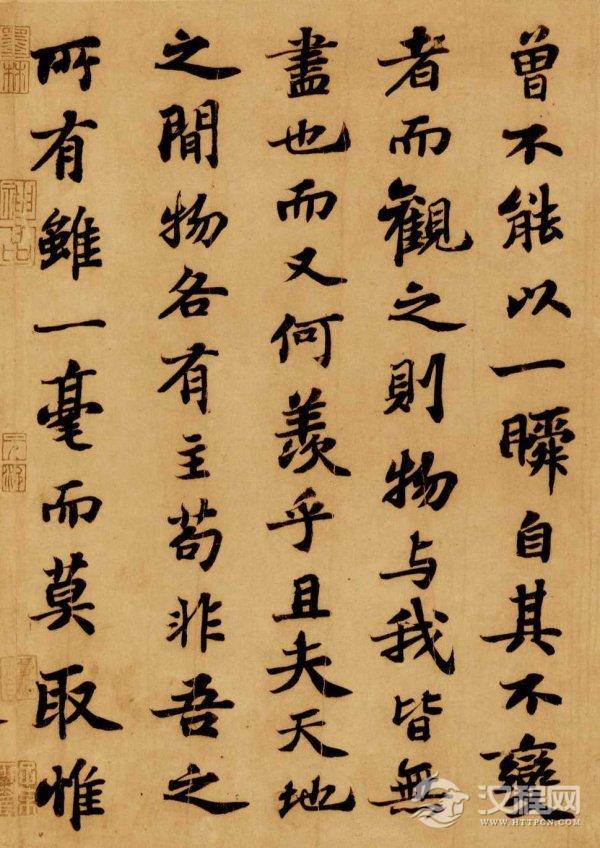 曾不能以一瞬自其不變
者而觀之則物与我皆無
盡也而又何羨乎且夫天地
之間物各有主苟非吾之
所有雖一毫而莫取惟
汉程网
WWW.HTTPCN.COM